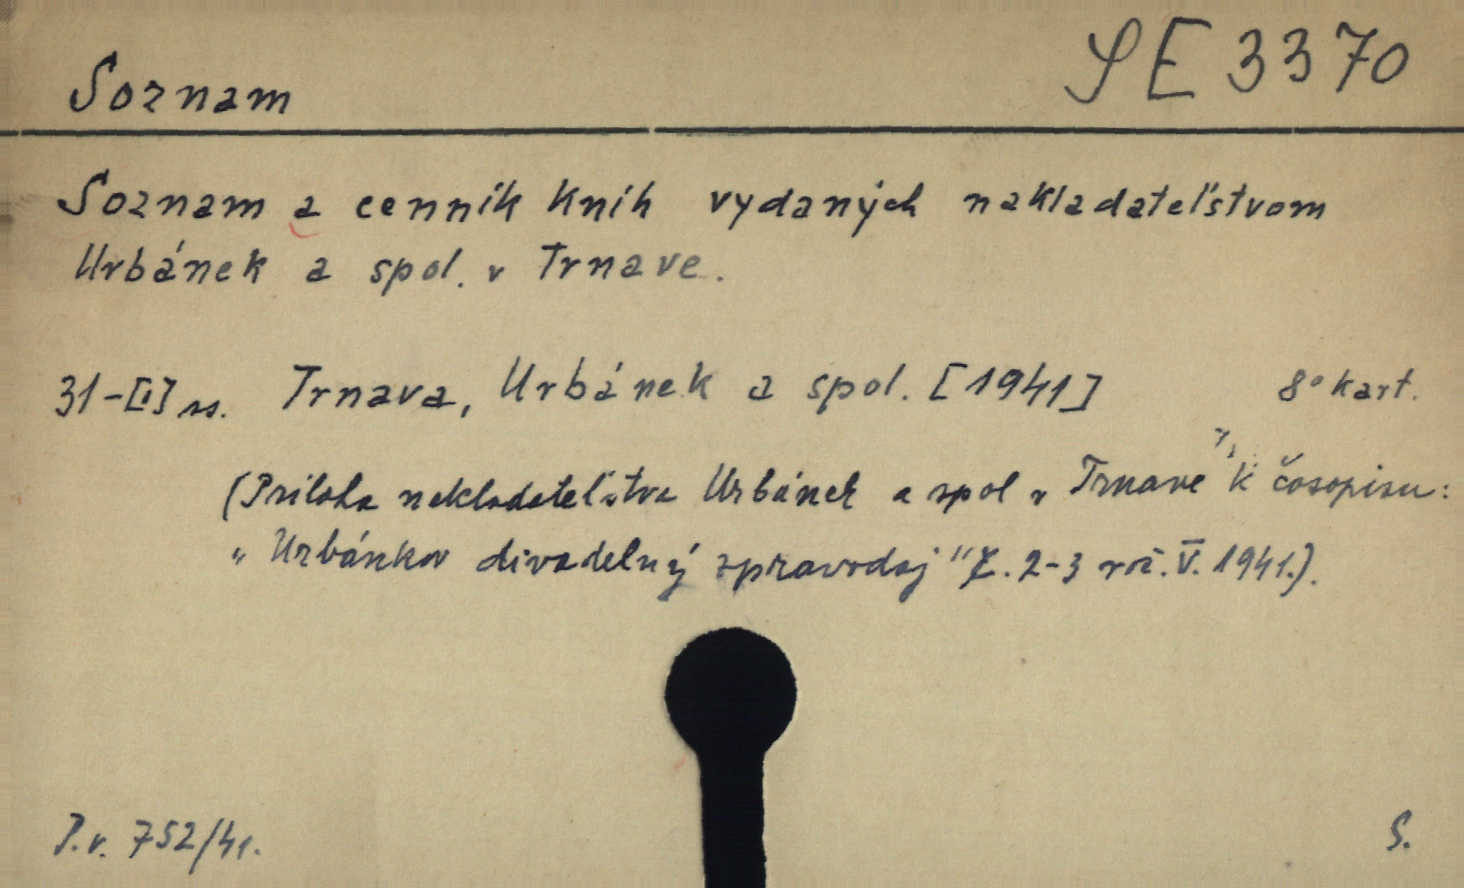 Soznam
SE 3370
Soznam a cenník kníh vydaných nakladateľstvom
Urbánek a spol. v Trnave.
31-[I] ss. Trnava, Urbánek a spol. [1941] 8° kart.
(Príloha nakladateľstva Urbánek a spol v Trnave k časopisu:
"Urbánkov divadelný zpravodaj" č. 2-3 roč. V. 1941.).
P.v. 752/41.
S.